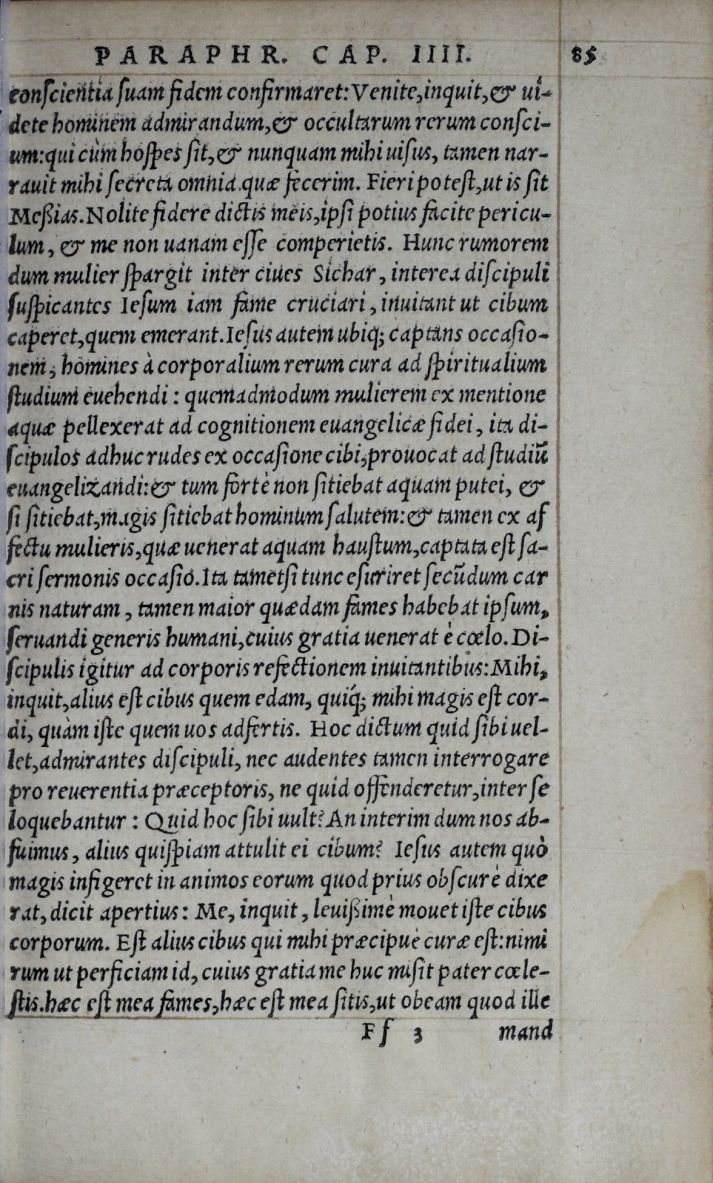 PARAPHR. CAP. IIII. 85
conſcientia ſuam fidem confirmaret: Venite, inquit, & ui-
dete hominem admirandum, & occultarum rerum conſci-
um: qui cùm hoſpes ſit, & nunquam mihi uiſus, tamen nar-
rauit mihi ſecreta omnia quæ fecerim. Fieri poteſt, ut is ſit
Meßias. Nolite fidere dictis meis, ipſi potius facite pericu-
lum, & me non uanam eſſe comperietis. Hunc rumorem
dum mulier ſpargit inter ciues Sichar, interea diſcipuli
ſuſpicantes Ieſum iam fame cruciari, inuitant ut cibum
caperet, quem emerant. Ieſus autem ubiq; captans occaſio-
nem, homines à corporalium rerum cura ad ſpiritualium
ſtudium euehendi: quemadmodum mulierem ex mentione
aquæ pellexerat ad cognitionem euangelicæ fidei, ita di-
ſcipulos adhuc rudes ex occaſione cibi, prouocat ad ſtudiū
euangelizandi: & tum fortè non ſitiebat aquam putei, &
ſi ſitiebat, magis ſitiebat hominum ſalutem: & tamen ex af
fectu mulieris, quæ uenerat aquam hauſtum, captata eſt ſa-
cri ſermonis occaſio. Ita tametſi tunc eſuriret ſecūdum car
nis naturam, tamen maior quædam fames habebat ipſum,
ſeruandi generis humani, cuius gratia uenerat è cœlo. Di-
ſcipulis igitur ad corporis refectionem inuitantibus: Mihi,
inquit, alius eſt cibus quem edam, quiq́; mihi magis eſt cor-
di, quàm iſte quem uos adfertis. Hoc dictum quid ſibi uel-
let, admirantes diſcipuli, nec audentes tamen interrogare
pro reuerentia præceptoris, ne quid offenderetur, inter ſe
loquebantur: Quid hoc ſibi uult? An interim dum nos ab-
fuimus, alius quiſpiam attulit ei cibum? Ieſus autem quò
magis infigeret in animos eorum quod prius obſcurè dixe
rat, dicit apertius: Me, inquit, leuißimè mouet iſte cibus
corporum. Eſt alius cibus qui mihi præcipuè curæ eſt: nimi
rum ut perficiam id, cuius gratia me huc miſit pater cœle-
ſtis. hæc eſt mea fames, hæc eſt mea ſitis, ut obeam quod ille
Ff 3 mand